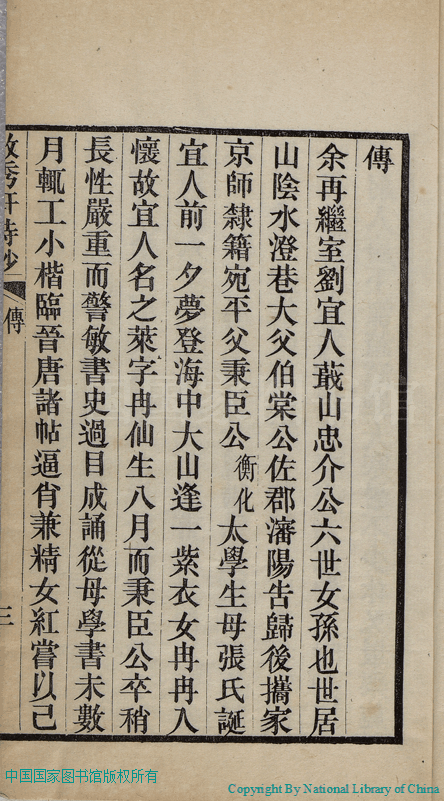 傳
余再繼室劉宜人蕺山忠介公六世女孫也世居
山陰水澄巷大父伯棠公佐郡瀋陽告歸後攜家
京師隸籍宛平父秉臣公衡化太學生母張氏誕
宜人前一夕夢登海中大山逢一紫衣女冉冉入
懷故宜人名之萊字冉仙生八月而秉臣公卒稍
長性嚴重而警敏書史過目成誦從母學書未數
月輒工小楷臨晉唐諸帖逼肖兼精女紅嘗以己
秀軒詩鈔
傳
三
中国国家图书馆版权所有
Copyright By National Library of China